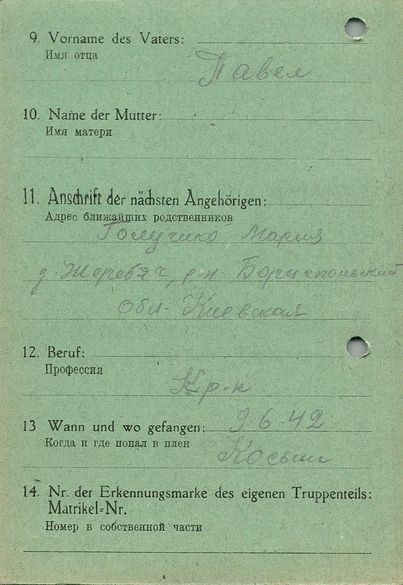 9. Vorname des Vaters:
Имя отца
Павел
10. Name der Mutter:
Имя матери
11. Anschrift der nächsten Angehörigen:
Адрес ближайших родственников
Мария
д. р-н Бориспольский
обл. Киевская
12. Beruf:
Профессия
Кр-н
13 Wann und wo gefangen: 9.6.42
Когда и где попал в плен
14. Nr. der Erkennungsmarke des eigenen Truppenteils:
Matrikel-Nr.
Номер в собственной части